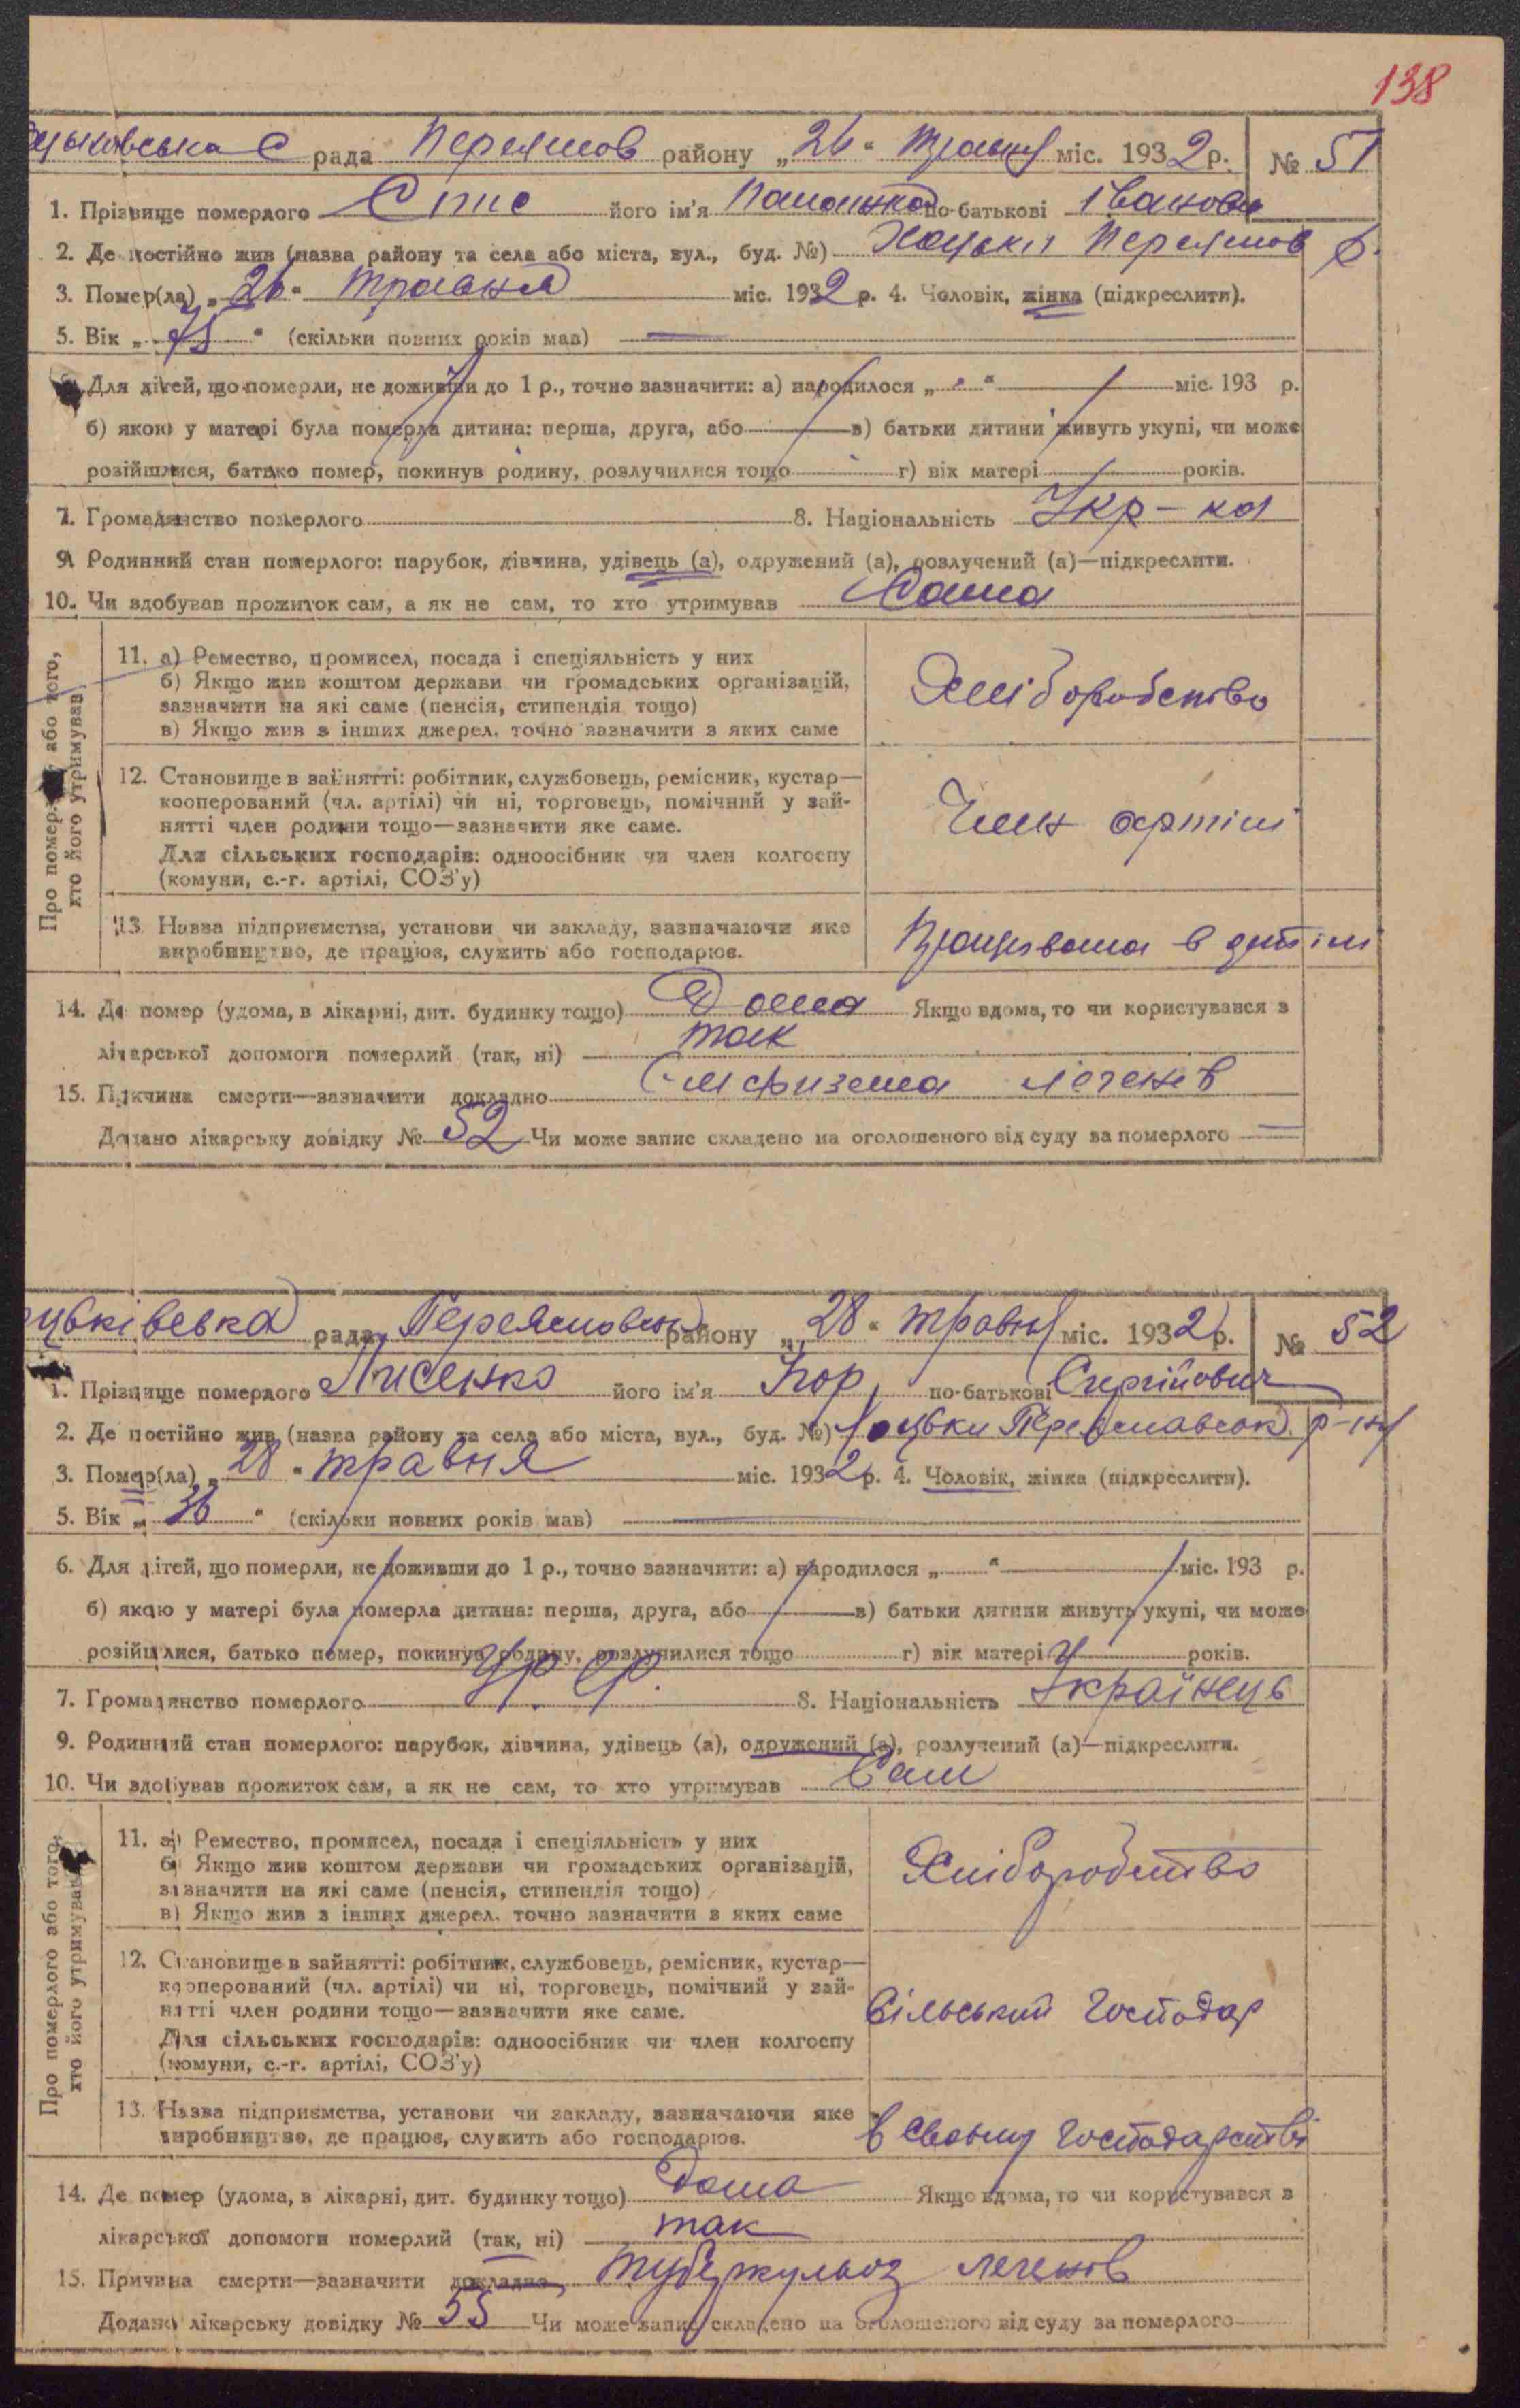 138
рада Переяслов району „26“ травня міс. 1932 р. № 51
1. Прізвище померлого його ім'я по-батькові Іванова
2. Де постійно жив (назва району та села або міста, вул., буд. №) Хоцьки Переяслов р.
3. Помер(ла) „26“ травня міс. 1932 р. 4. Чоловік, жінка (підкреслити).
5. Вік „75“ (скільки повних років мав) —
6. Для дітей, що померли, не доживши до 1 р., точно зазначити: а) народилося „ “ міс. 193 р.
б) якою у матері була померла дитина: перша, друга, або в) батьки дитини живуть укупі, чи може
розійшлися, батько помер, покинув родину, розлучилися тощо г) вік матері років.
7. Громадянство померлого 8. Національність Укр-ка
9. Родинний стан померлого: парубок, дівчина, удівець (а), одружений (а), розлучений (а)—підкреслити.
10. Чи здобував прожиток сам, а як не сам, то хто утримував Сама
Про померлого або того, хто його утримував
11. а) Ремество, промисел, посада і спеціяльність у них
б) Якщо жив коштом держави чи громадських організацій,
зазначити на які саме (пенсія, стипендія тощо)
в) Якщо жив з інших джерел, точно зазначити з яких саме
Хліборобство
12. Становище в зайнятті: робітник, службовець, ремісник, кустар—
кооперований (чл. артілі) чи ні, торговець, помічний у зай-
нятті член родини тощо—зазначити яке саме.
Для сільських господарів: одноосібник чи член колгоспу
(комуни, с.-г. артілі, СОЗ'у)
Член артілі
13. Назва підприємства, установи чи закладу, зазначаючи яке
виробництво, де працює, служить або господарює.
Працювала в артілі
14. Де помер (удома, в лікарні, дит. будинку тощо) Дома Якщо вдома, то чи користувався з
лікарської допомоги померлий (так, ні) так
15. Причина смерти—зазначити докладно Емфизема легенів
Додано лікарську довідку № 52 Чи може запис складено на оголошеного від суду за померлого —
рада Переясловськ району „28“ травня міс. 1932 р. № 52
1. Прізвище померлого Лисенко його ім'я по-батькові Сергійович
2. Де постійно жив (назва району та села або міста, вул., буд. №) Хоцьки Переяславськ. р-ну
3. Помер(ла) „28“ травня міс. 1932 р. 4. Чоловік, жінка (підкреслити).
5. Вік „36“ (скільки повних років мав) —
6. Для дітей, що померли, не доживши до 1 р., точно зазначити: а) народилося „ “ міс. 193 р.
б) якою у матері була померла дитина: перша, друга, або в) батьки дитини живуть укупі, чи може
розійшлися, батько помер, покинув родину, розлучилися тощо г) вік матері років.
7. Громадянство померлого 8. Національність Українець
9. Родинний стан померлого: парубок, дівчина, удівець (а), одружений (а), розлучений (а)—підкреслити.
10. Чи здобував прожиток сам, а як не сам, то хто утримував Сам
Про померлого або того, хто його утримував
11. а) Ремество, промисел, посада і спеціяльність у них
б) Якщо жив коштом держави чи громадських організацій,
зазначити на які саме (пенсія, стипендія тощо)
в) Якщо жив з інших джерел, точно зазначити з яких саме
Хліборобство
12. Становище в зайнятті: робітник, службовець, ремісник, кустар—
кооперований (чл. артілі) чи ні, торговець, помічний у зай-
нятті член родини тощо—зазначити яке саме.
Для сільських господарів: одноосібник чи член колгоспу
(комуни, с.-г. артілі, СОЗ'у)
Сільський Господар
13. Назва підприємства, установи чи закладу, зазначаючи яке
виробництво, де працює, служить або господарює.
в своєму господарстві
14. Де помер (удома, в лікарні, дит. будинку тощо) Дома Якщо вдома, то чи користувався з
лікарської допомоги померлий (так, ні) так
15. Причина смерти—зазначити докладно туберкульоз легенів
Додано лікарську довідку № 55 Чи може запис складено на оголошеного від суду за померлого